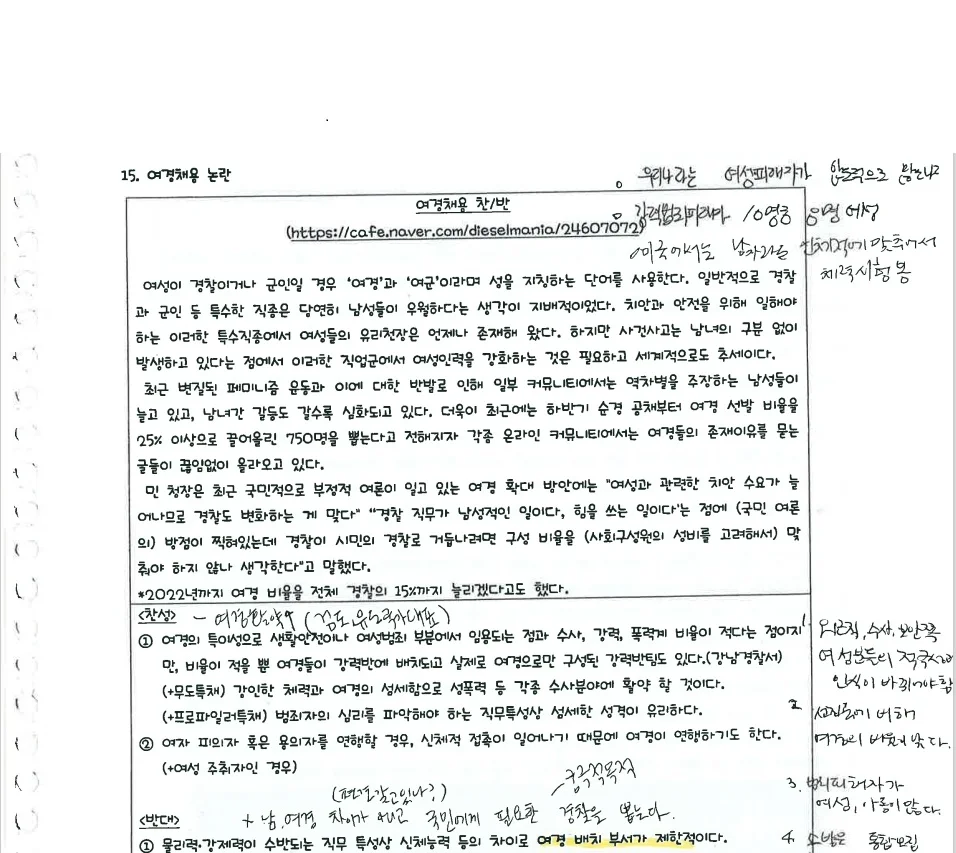 15. 여경채용 논란
。 우리나라는 여성피해자가 압도적으로 많으나
여경채용 찬/반
。 강력범죄피해자 10명중 명 여성
(https://cafe.naver.com/dieselmania/24607072)
미국에서는 남자라는 신체적에 맞추어서
체력시험 봄
여성이 경찰이거나 군인일 경우 '여경'과 '여군'이라며 성을 지칭하는 단어를 사용한다. 일반적으로 경찰
과 군인 등 특수한 직종은 당연히 남성들이 우월하다는 생각이 지배적이었다. 치안과 안전을 위해 일해야
하는 이러한 특수직종에서 여성들의 유리천장은 언제나 존재해 왔다. 하지만 사건사고는 남녀의 구분 없이
발생하고 있다는 점에서 이러한 직업군에서 여성인력을 강화하는 것은 필요하고 세계적으로도 추세이다.
최근 변질된 페미니즘 운동과 이에 대한 반발로 인해 일부 커뮤니티에서는 역차별을 주장하는 남성들이
늘고 있고, 남녀간 갈등도 갈수록 심화되고 있다. 더욱이 최근에는 하반기 순경 공채부터 여경 선발 비율을
25% 이상으로 끌어올린 750명을 뽑는다고 전해지자 각종 온라인 커뮤니티에서는 여경들의 존재이유를 묻는
글들이 끊임없이 올라오고 있다.
민 청장은 최근 국민적으로 부정적 여론이 일고 있는 여경 확대 방안에는 "여성과 관련한 치안 수요가 늘
어나므로 경찰도 변화하는 게 맞다" "'경찰 직무가 남성적인 일이다, 힘을 쓰는 일이다'는 점에 (국민 여론
의) 방점이 찍혀있는데 경찰이 시민의 경찰로 거듭나려면 구성 비율을 (사회구성원의 성비를 고려해서) 맞
춰야 하지 않나 생각한다"고 말했다.
*2022년까지 여경 비율을 전체 경찰의 15%까지 늘리겠다고도 했다.
<찬성> - 여경활약↑ (검도, 유도 국가대표)
① 여경의 특이성으로 생활안전이나 여성범죄 부분에서 임용되는 점과 수사, 강력, 폭력계 비율이 적다는 점이지
만, 비율이 적을 뿐 여경들이 강력반에 배치되고 실제로 여경으로만 구성된 강력반팀도 있다.(강남경찰서)
(+무도특채) 강인한 체력과 여경의 섬세함으로 성폭력 등 각종 수사분야에 활약 할 것이다.
(+프로파일러특채) 범죄자의 심리를 파악해야 하는 직무특성상 섬세한 성격이 유리하다.
② 여자 피의자 혹은 용의자를 연행할 경우, 신체적 접촉이 일어나기 때문에 여경이 연행하기도 한다.
(+여성 주취자인 경우)
1. 외근직, 수사, 보안쪽
여성분들의 적극
인식이 바뀌어야 함
2. 선진국에 비해
여경의 비율이 낮다.
3. 범죄피해자가
여성, 아동이 많다.
4. 수방은 통합모집
(편견갖고있나?) 궁극적목적
+ 남, 여경 차이가 아니고 국민에게 필요한 경찰을 뽑는다.
<반대>
① 물리력·강제력이 수반되는 직무 특성상 신체능력 등의 차이로 여경 배치 부서가 제한적이다.